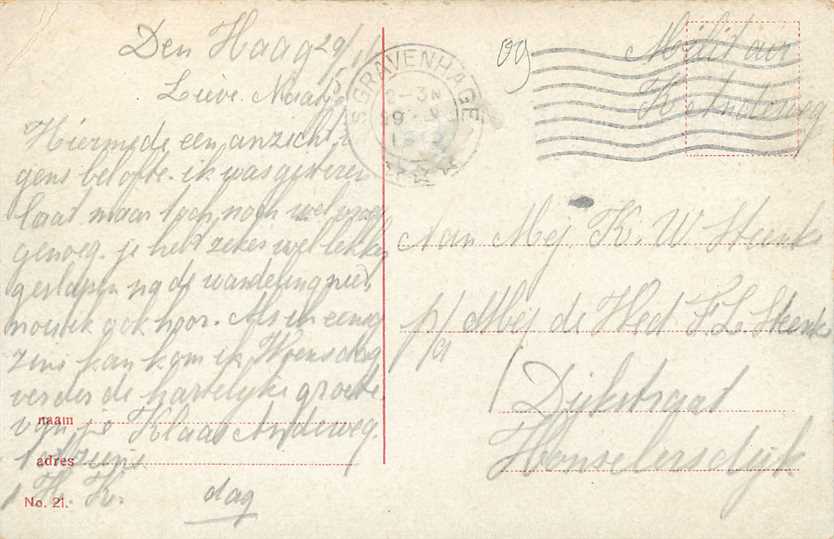 Den Haag 29/
Lieve Naatje
Hiermede een anzicht vol
gens belofte. ik was gisteren
laat maar toch noch wel vroeg
genoeg. je hebt zeker wel lekker
geslapen na de wandeling niet
nou ik ook hoor. Als ik eenig
zins kan kom ik Woensdag
verder de hartelijke groete.
van je Klaas Andeweg.
naam
tot ziens
adres
K. K. dag
No. 21.
'SGRAVENHAGE
2-3N
Militair
K Andeweg
Aan Mej. K. W Steenks
p/a Mej de Wed F. L. Steenks
Dijkstraat
Honselersdijk